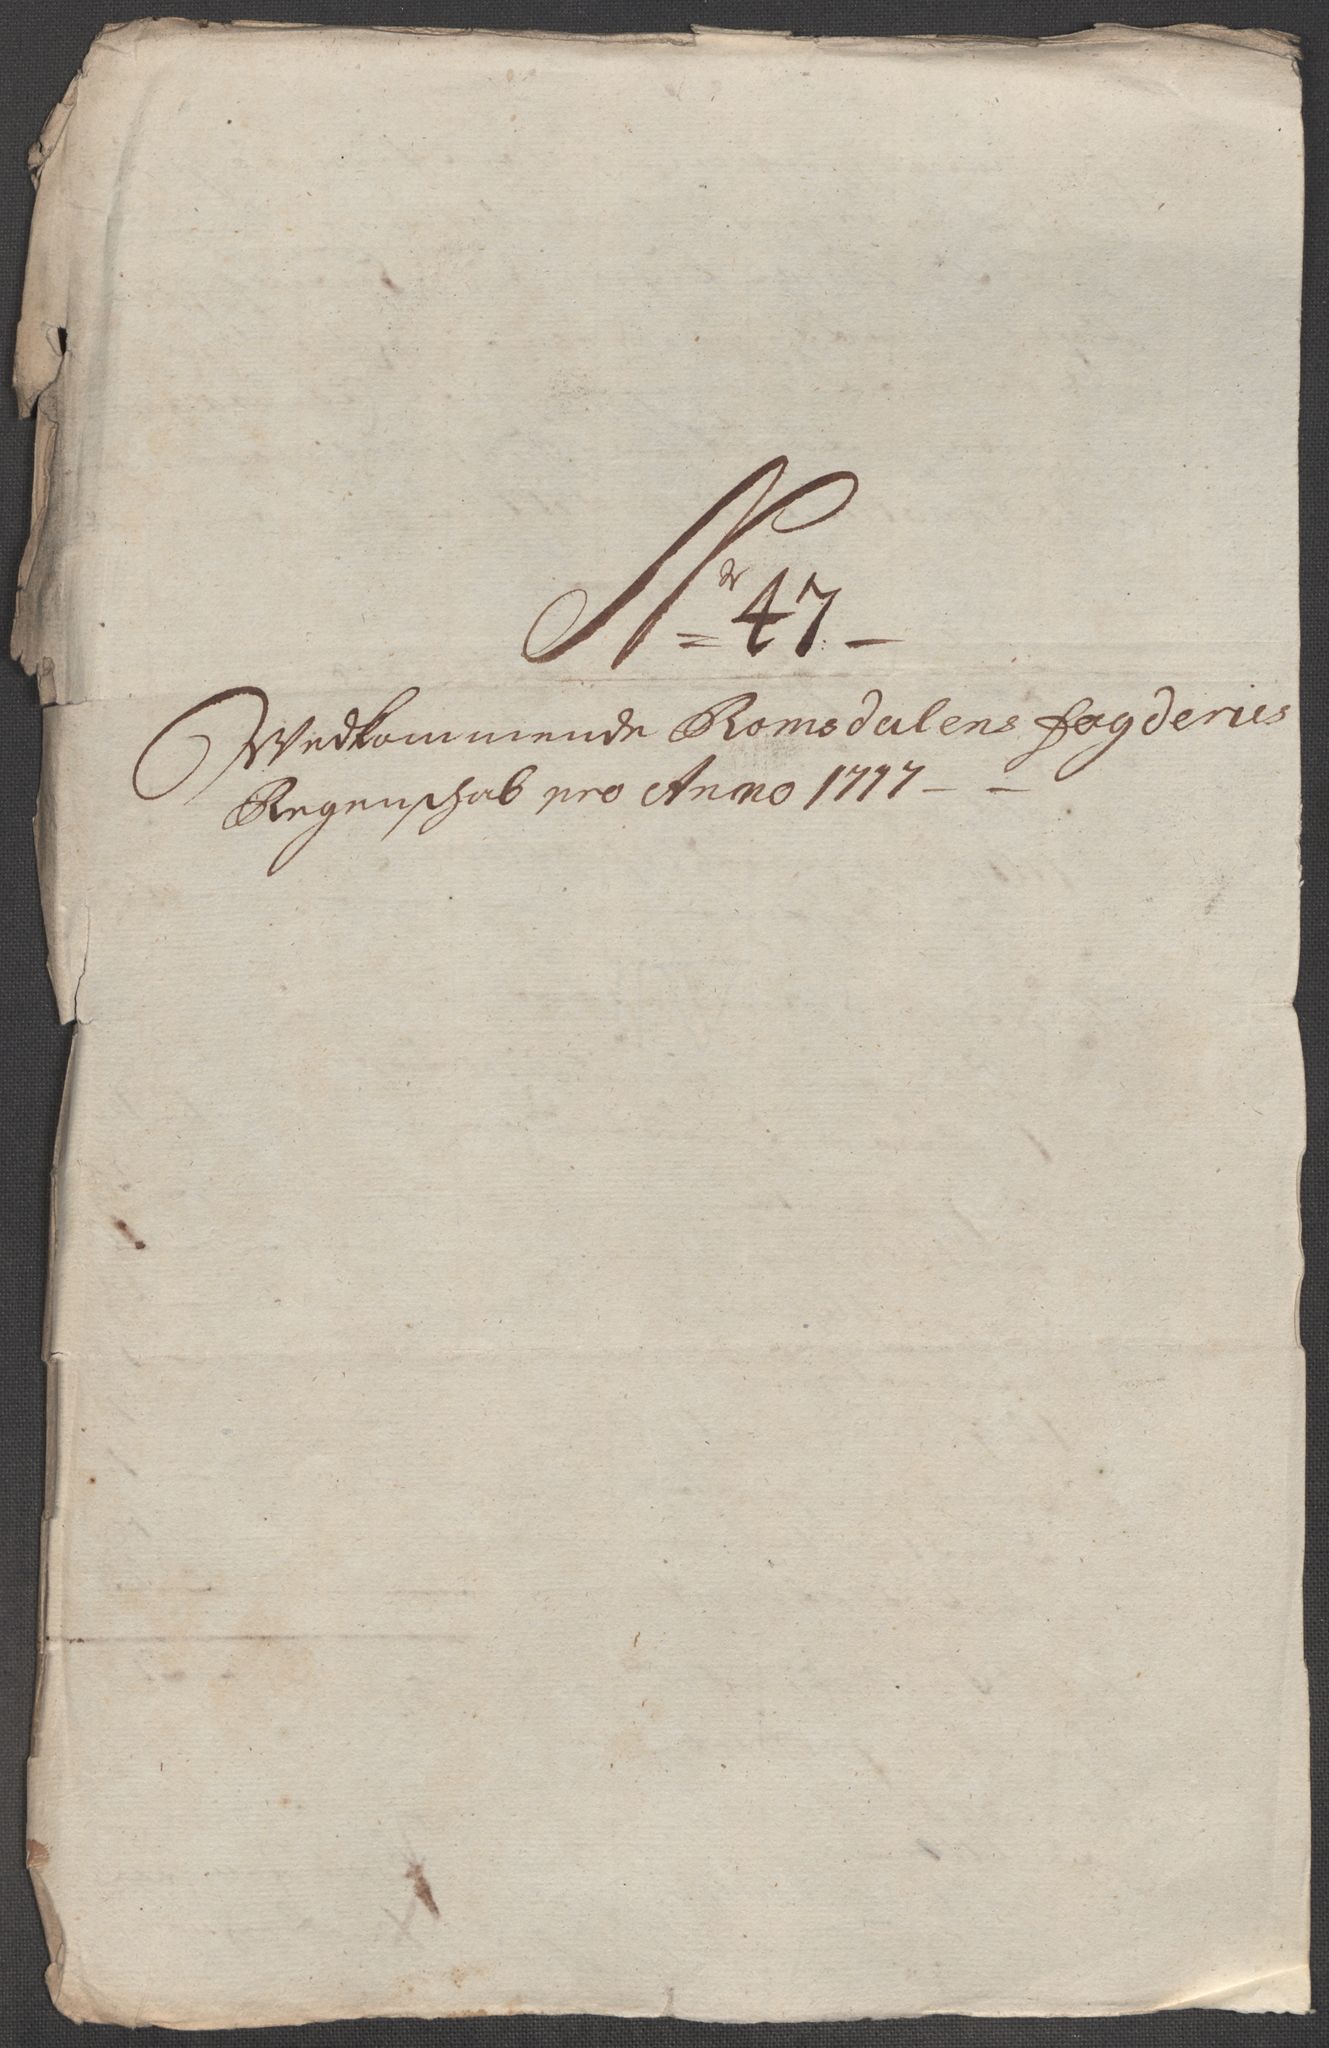 Nr 47 —
Wedkommende Romsdalens fogderies
Regenschab pro Anno 1717 — —